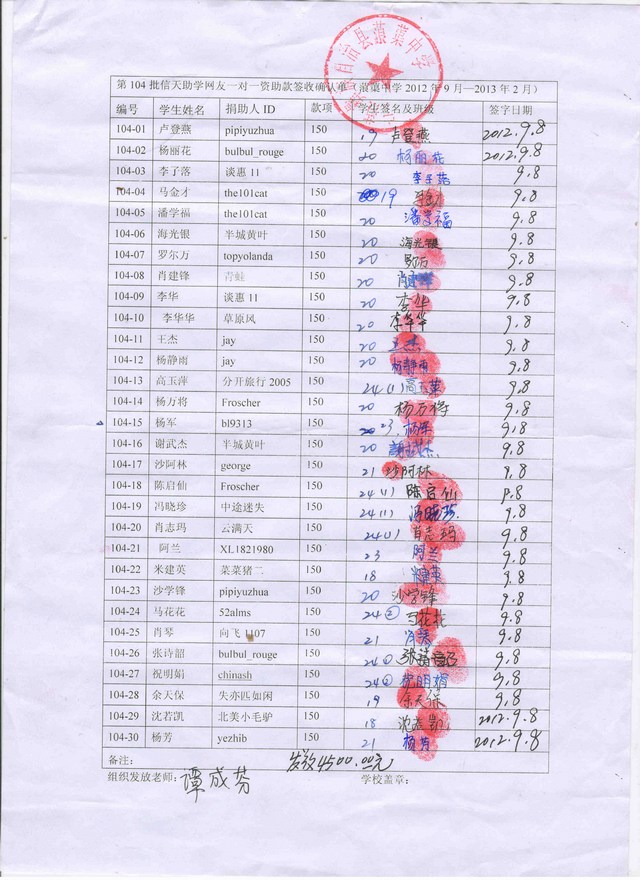 自治县蒗蕖中学
第 104 批信天助学网友一对一资助款签收确认单（蒗蕖中学 2012 年 9 月—2013 年 2 月）
编号 学生姓名 捐助人 ID 款项 学生签名及班级 签字日期
104-01 卢登燕 pipiyuzhua 150 19 卢登燕 2012.9.8
104-02 杨丽花 bulbul_rouge 150 20 杨丽花 2012.9.8
104-03 李子落 谈惠 11 150 20 9.8
104-04 马金才 the101cat 150 19 9.8
104-05 潘学福 the101cat 150 20 潘学福 9.8
104-06 海光银 半城黄叶 150 20 海光银 9.8
104-07 罗尔万 topyolanda 150 20 9.8
104-08 肖建锋 青蛙 150 20 9.8
104-09 李华 谈惠 11 150 20 李华 9.8
104-10 李华华 草原风 150 20 李华华 9.8
104-11 王杰 jay 150 20 王杰 9.8
104-12 杨静雨 jay 150 20 杨静雨 9.8
104-13 高玉萍 分开旅行 2005 150 24(1) 9.8
104-14 杨万将 Froscher 150 20 杨万将 9.8
104-15 杨军 bl9313 150 23 杨军 9.8
104-16 谢武杰 半城黄叶 150 20 谢武杰 9.8
104-17 沙阿林 george 150 21 沙阿林 9.8
104-18 陈启仙 Froscher 150 24(1) 陈启仙 9.8
104-19 冯晓珍 中途迷失 150 24(1) 冯晓珍 9.8
104-20 肖志玛 云满天 150 24(1) 肖志玛 9.8
104-21 阿兰 XL1821980 150 23 阿兰 9.8
104-22 米建英 菜菜猪二 150 18 米建英 9.8
104-23 沙学锋 pipiyuzhua 150 20 沙学锋 9.8
104-24 马花花 52alms 150 24② 马花花 9.8
104-25 肖琴 向飞 107 150 21 肖琴 9.8
104-26 张诗韶 bulbul_rouge 150 24 9.8
104-27 祝明娟 chinash 150 24② 祝明娟 9.8
104-28 余天保 失亦匹如闲 150 19 余天保 9.8
104-29 沈若凯 北美小毛驴 150 18 沈若凯 2012.9.8
104-30 杨芳 yezhib 150 21 杨芳 2012.9.8
备注： 发放4500.00元
组织发放老师： 谭成芬 学校盖章：